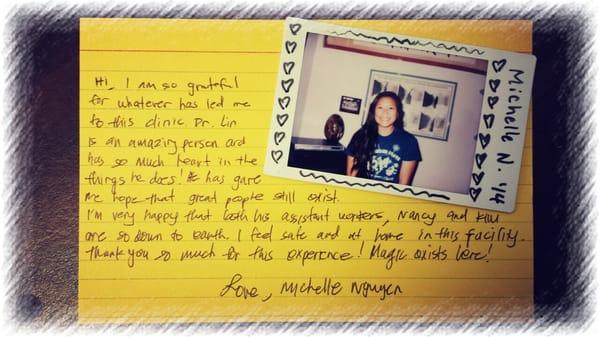 Hi, I am so grateful
for whatever has led me
to this clinic. Dr. Lin
is an amazing person and
has so much heart in the
things he does! He has gave
me hope that great people still exist.
I'm very happy that both his assistant workers, Nancy and Kim
are so down to earth. I feel safe and at home in this facility.
Thank you so much for this experence! Magic exists here!
Love, Michelle Nguyen
Michelle N. '14